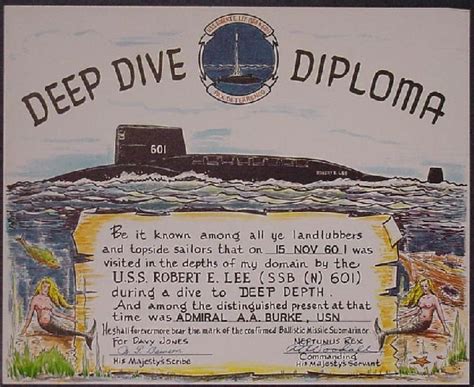 U.S.S. ROBERT E. LEE
DEEP DIVE DIPLOMA
601
ROBERT E. LEE
Be it known among all ye landlubbers
and topside sailors that on 15 NOV 60 I was
visited in the depths of my domain by the
U.S.S. ROBERT E. LEE (SSB (N) 601)
during a dive to DEEP DEPTH.
And among the distinguished present at that
time was ADMIRAL A.A. BURKE, USN
He shall forevermore bear the mark of the confirmed Ballistic Missile Submariner.
For Davy Jones
Neptunus Rex
His Majesty's Scribe
Commanding
His Majesty's Servant